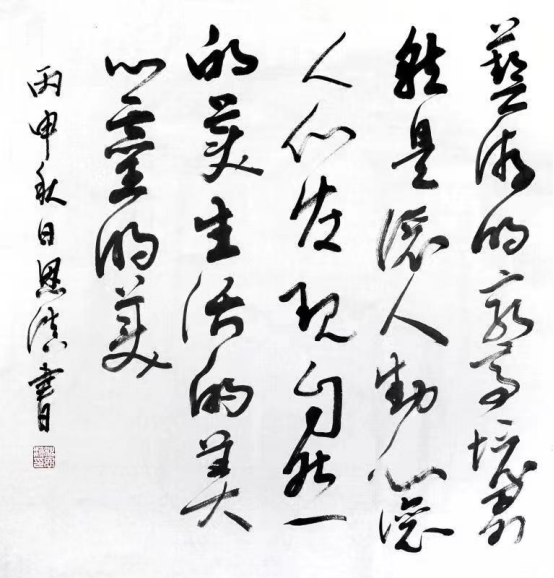 藝術的最高境界
就是讓人動心讓
人们发现自然
的美生活的美
心靈的美
丙申秋日恩書